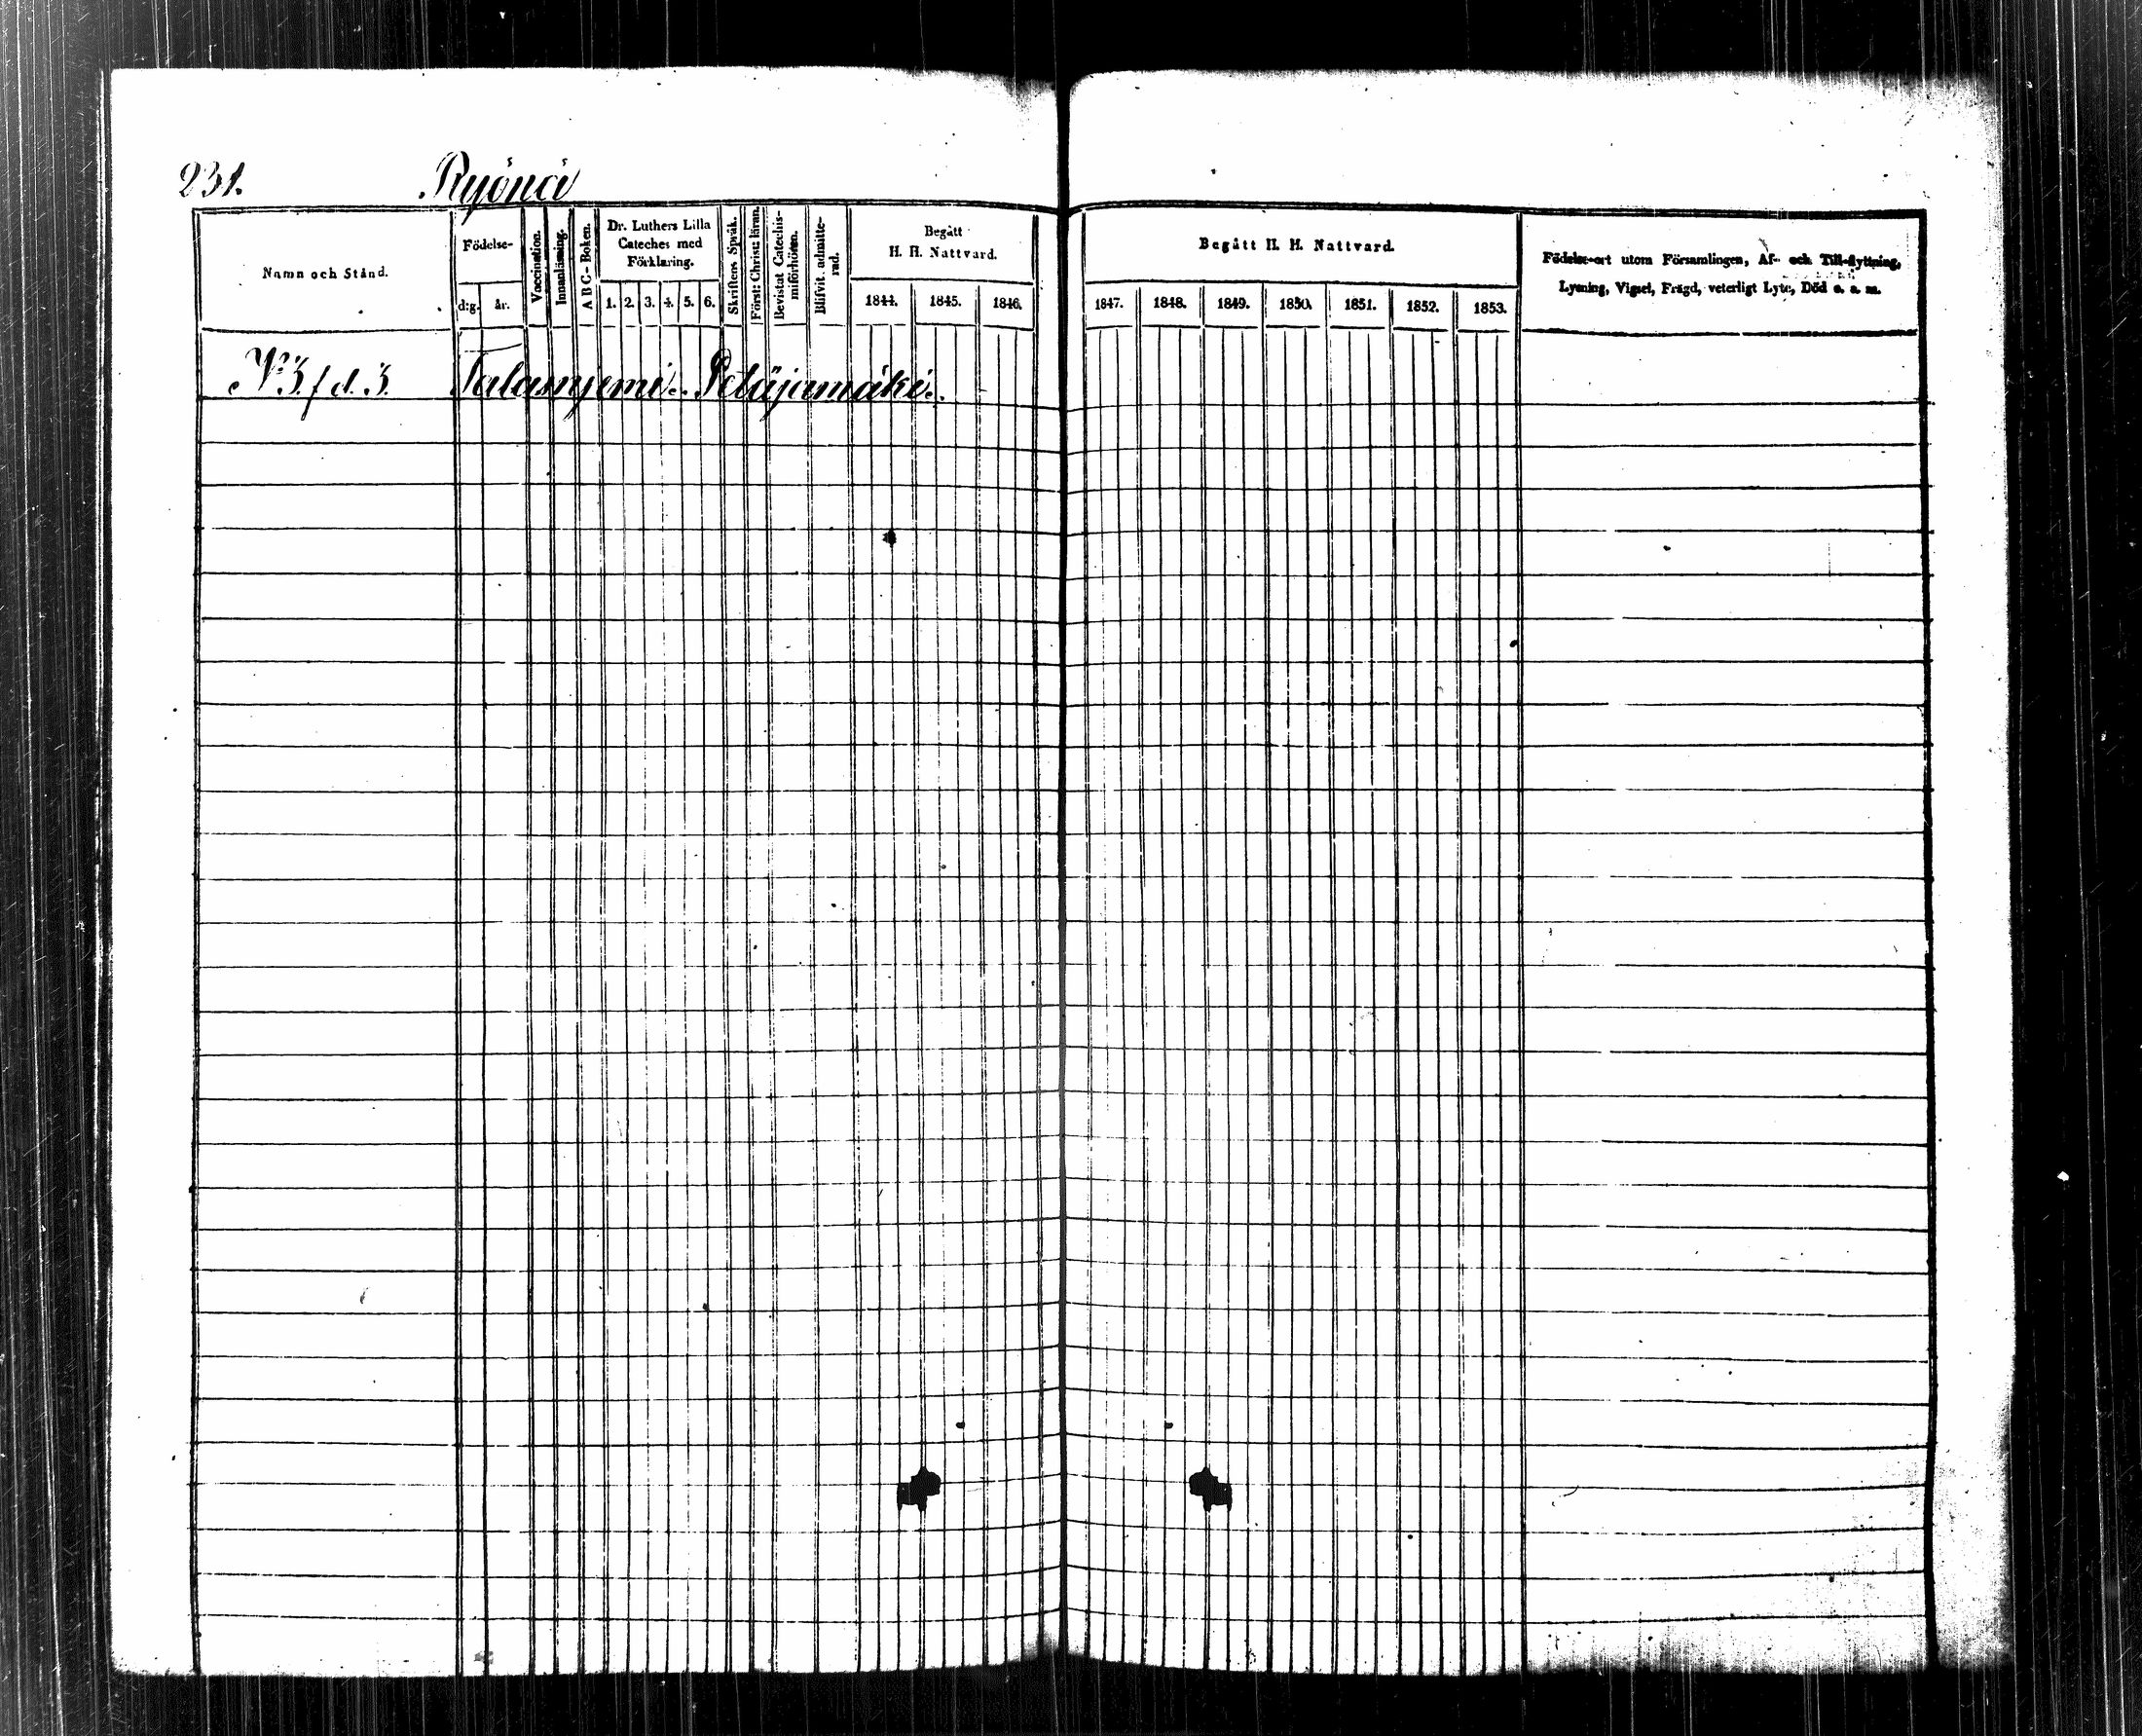 231. Ryönä
Namn och Stånd.
Födelse-
d:g. år.
Vaccination.
Innanläsning.
A B C - Boken.
Dr. Luthers Lilla
Cateches med
Förklaring.
1. 2. 3. 4. 5. 6.
Skriftens Språk.
Först: Christ: läran.
Bevistat Catechis-
miförhören.
Blifvit admitte-
rad.
Begått
H. H. Nattvard.
1844. 1845. 1846.
Begått H. H. Nattvard.
1847. 1848. 1849. 1850. 1851. 1852. 1853.
Födelse-ort utom Församlingen, Af- och Till-flyttning,
Lysning, Vigsel, Frägd, veterligt Lyte, Död o. s. m.
N:o 3. f d. 3. Talasnjemi. Petäjämäki.